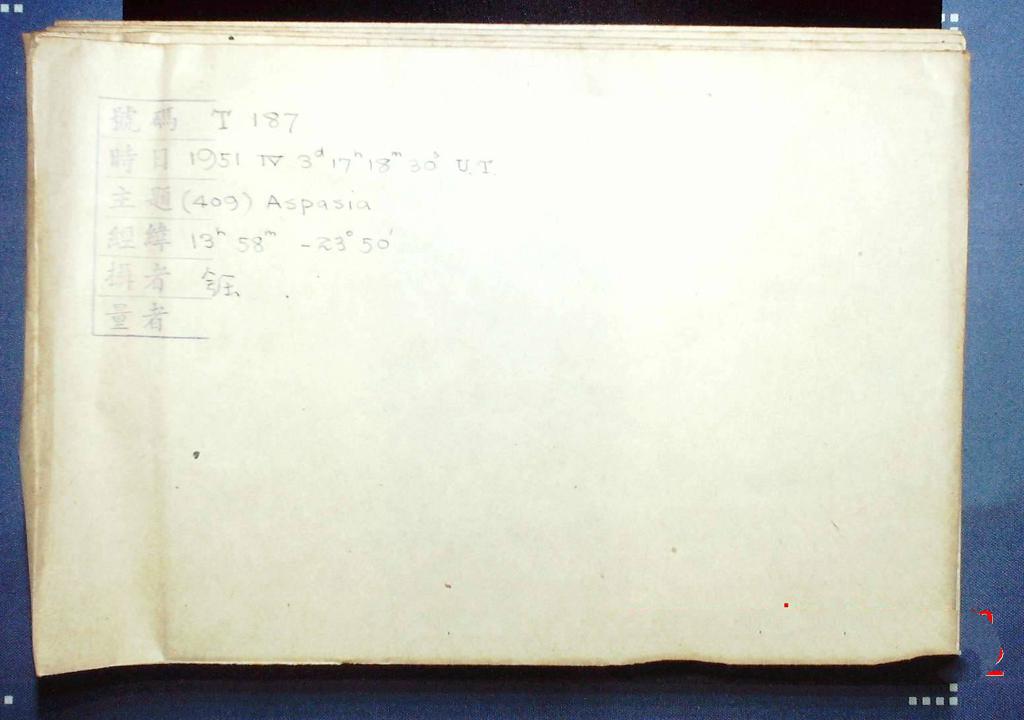 號碼 T 187
時日 1951 IV 3ᵈ 17ʰ 18ᵐ 30ˢ U.T.
主題 (409) Aspasia
經緯 13ʰ 58ᵐ -23° 50′
攝者
量者
2